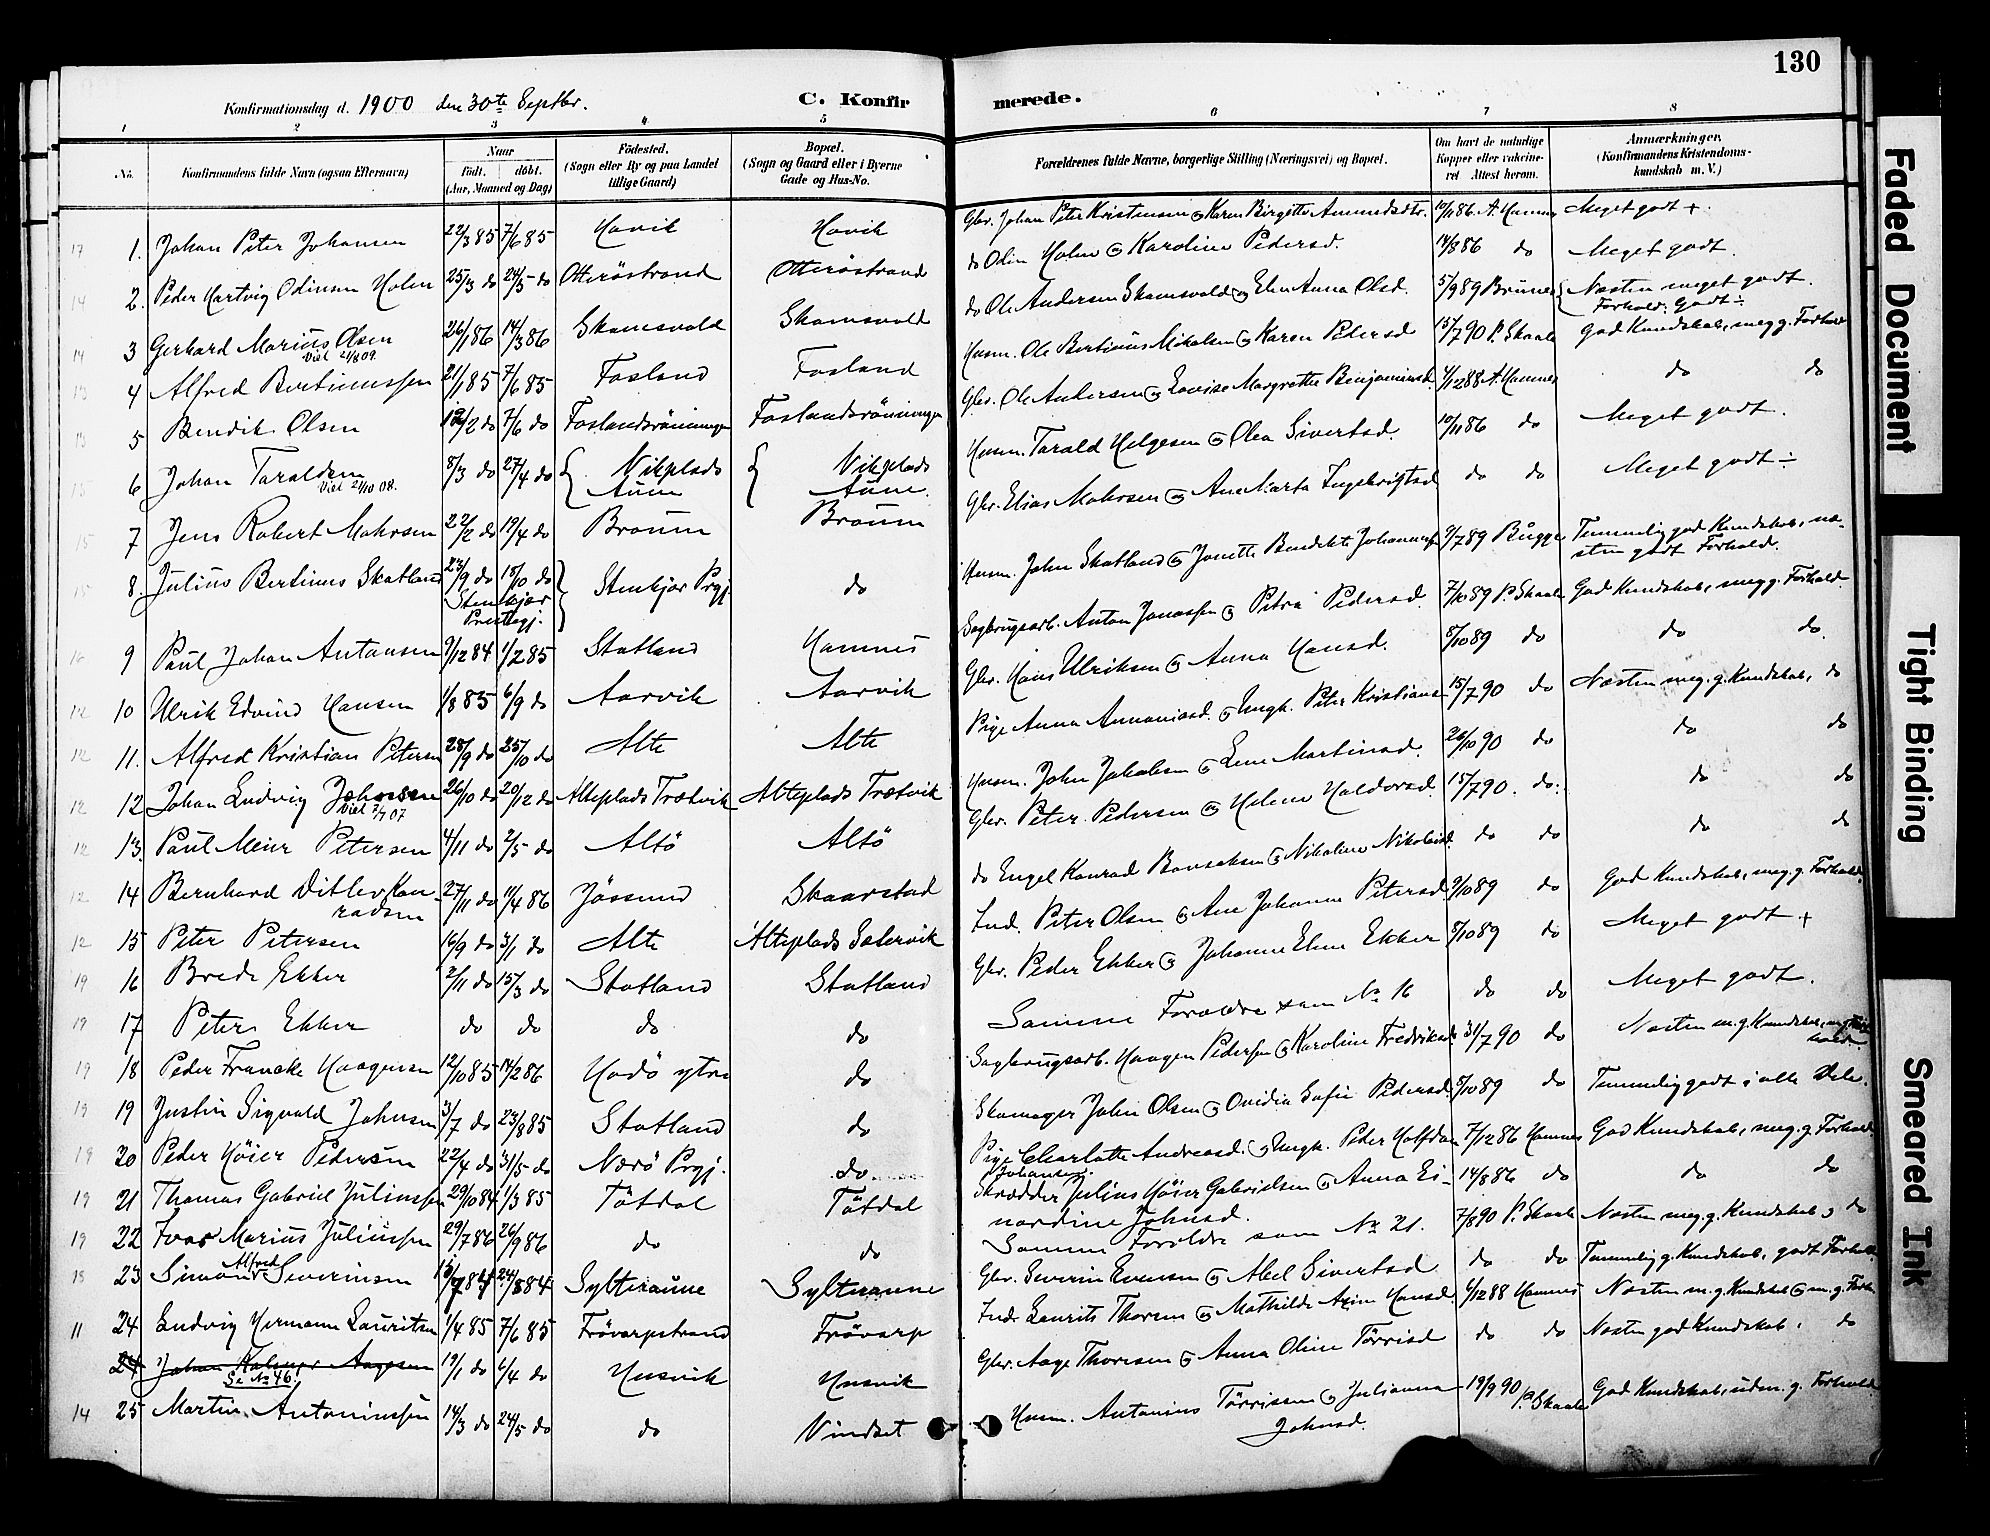 130
Konfirmationsdag d. 1900 den 30te Septbr. C. Konfirmerede.
1 2 3 4 5 6 7 8
No. Konfirmandens fulde Navn (ogsaa Efternavn) Naar født. døbt. (Aar, Maaned og Dag) Fødested. (Sogn eller By og paa Landet tillige Gaard) Bopæl. (Sogn og Gaard eller i Byerne Gade og Hus-No. Forældrenes fulde Navne, borgerlige Stilling (Næringsvei) og Bopæl. Om havt de naturlige Kopper eller vakcineret Attest herom. Anmærkninger. (Konfirmandens Kristendomskundskab m. V.)
17 1. Johan Peter Johansen 22/3 85 7/6 85 Havik Havik Gbr. Johan Peter Kristensen og Karen Birgitte 10/11 86. Meget godt +
14 2. Peder Hartvig Odinsen Holen 25/3 do 24/5 do Otteröstrand Otteröstrand do Odin Holen og Karoline Pedersd. 14/8 86 do Meget godt.
14 3 Gerhard Marius Olsen 26/1 86 14/3 86 Skamsvold Skamsvold do Ole Andersen Skamsvold og Elen Anna Olsd. 5/9 89 { Næsten meget godt.
Forhold: Godt ÷
13 4 Alfred Bertinussen 21/1 85 7/6 85 Fosland Fosland Husm. Ole Bertinus Mikalsen og Karen Petersd 15/7 90 P. Skaale God Kundskab, meg g. Forhold
13 5 Bendik Olsen 12/2 do 7/6 do Foslandsrönningen Foslandsrönningen Gbr. Ole Andersen og Lovise Margrethe Benjaminsd. 4/12 88 A. Hamnes do do
6 Johan Taraldsen 8/3 do 27/4 do { Vikplads Aune { Vikplads Aune. Husm. Tarald Helgesen og Olea Sivertsd. 10/11 86 do Meget godt.
15 7 Jens Robert Mohrsen 22/2 do 19/4 do Braun Braun Gbr. Elias Mohrsen og Ane Marta Ingebrigtsd do do Meget godt ÷
15 8. Julius Bertinus Skatland 23/9 do 18/10 do Stenkjær Prgj. do Husm. John Skatland og Jonette Benedikte 9/7 89 Bugge Temmelig god Kundskab, næ-
Stenkjær
Prestegj.
sten godt Forhold.
16 9 Paul Johan Antonsen 9/12 84 1/2 85 Statland Hamnes Sagbrugsarb. Anton Jonassen og Petra Pedersd. 7/10 89 P. Skaale God Kundskab, meg g. Forhold
12 10 Ulrik Edvind Hansen 1/8 85 6/9 do Aarvik Aarvik Gbr. Hans Ulriksen og Anna Hansd. 8/10 89 do do do.
12 11. Alfred Kristian Petersen 28/9 do 25/10 do Alte Alte Pige Anna Annaniasd. og Ungk. Peter Kristians 15/7 90 do Næsten meg. g. Kundskab, do
12 12 Johan Ludvig Johnsen 26/10 do 20/12 do Alteplads Trætvik Alteplads Trætvik Husm. John Jakobsen og Lene Martinsd. 26/10 90 do do do
12 13. Paul Meier Petersen 4/11 do 2/5 do Altö Altö Gbr. Peter Pedersen og Helene Haldorsd. 15/7 90. do. do do
12 14 Bernhard Ditlev Kon-
radsen 27/11 do 11/4 86 Jössund Skaarstad do Engel Konrad og Nikoline do do do do
12 15 Peter Petersen 16/9 do 3/1 do Alte Alteplads Solervik Ind. Peter Olsen og Ane Johanna Petersd. 9/10 89 do God Kundskab, meg. g. Forhold.
19 16 Brede Ekker 2/11 do 15/3 do Statland Statland Gbr. Peder Ekker og Johanna Elene Ekker 8/10 89 do Meget godt +
19 17 Peter Ekker do do do do Samme Forældre som No 16 do do Meget godt.
19 18 Peder Francke Haagensen 12/10 85 14/2 86 Hodö ytre do Sagbrugsarb. Haagen Pedersen og Karoline Fredriksd. 31/7 90 do Næsten m. g. Kundskab,
19 19 Justin Sigvald Johnsen 3/7 do 23/8 85 Statland do Skomager John Olsen og Ovidia Sofie Pedersd. 8/10 89 do Temmelig godt i alle Dele.
19 20 Peder Höier Pedersen 22/4 do 31/5 do Nærö Prgj. do Pige Charlotte Andreasd. og Ungk. Peder Halfdan 7/12 86 Hamnes God Kundskab, meg. g. Forhold
Johansen.
19 21 Thomas Gabriel Juliussen 29/10 84 1/3 85 Tötdal Tötdal Skrædder Julius Höier Gabrielsen og Anna Ei- 14/8 86 do do do
nardine Johnsd.
19 22 Ivar Marius Juliussen 29/7 86 26/9 86 do do Samme Forældre som No 21. 7/8 90 P. Skaale Næsten meg. g. Kundskab, do
18 23 Simon Alfred Severinsen 24/8 84 Sylteraune Sylteraune Gbr. Severin Evensen og Abel Sivertsd do do Temmelig g. Kundskab, godt Forhold
11 24 Ludvig Hermann Lauritsen 1/4 85 7/6 85 Frövarpstrand Frövarp Indr. Laurits Thorsen og Mathilde Hansd. 6/12 88 Hamnes Næsten m. g. Kundskab og m. g. Forh.
24 Johan Aagesen 19/1 do 6/4 do Husvik Husvik Gbr. Aage Thoresen og Anna Oline Törrisd do do Næsten god Kundskab, do
Se No 46!
14 25 Martin Antoniussen 14/3 do 24/5 do do Vindset Husm. Antonius Törrissen og Julianna 19/9 90 P. Skaale God Kundskab, udm. g. Forhold
Johnsd.
Faded Document
Tight Binding
Smeared Ink